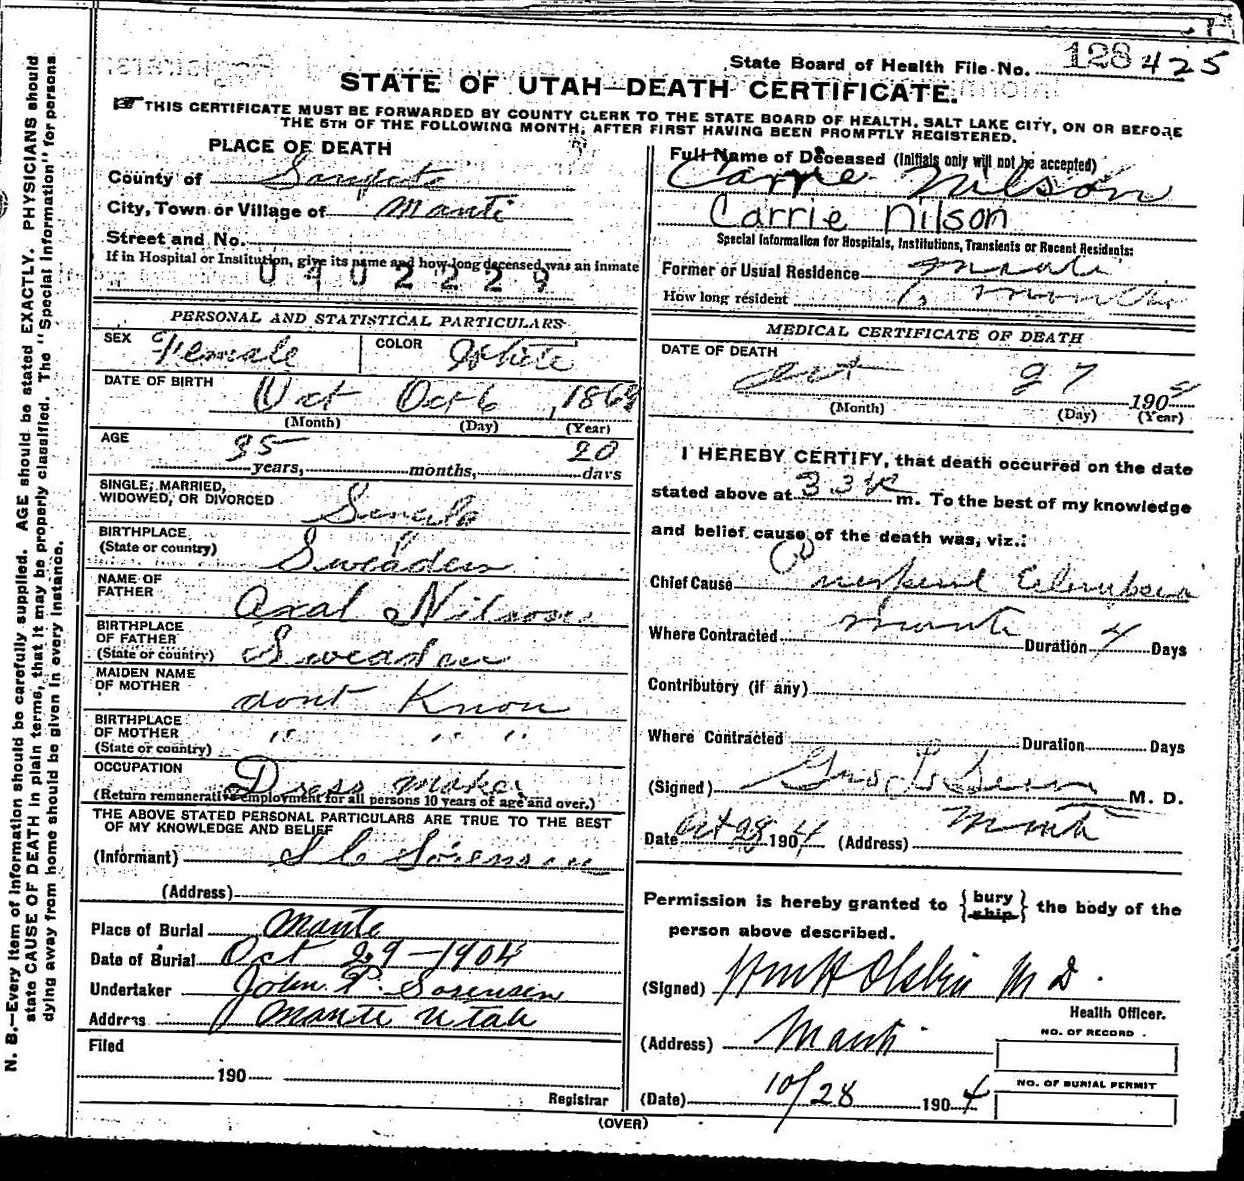 State Board of Health File No. 128425
STATE OF UTAH—DEATH CERTIFICATE.
THIS CERTIFICATE MUST BE FORWARDED BY COUNTY CLERK TO THE STATE BOARD OF HEALTH, SALT LAKE CITY, ON OR BEFORE
THE 5TH OF THE FOLLOWING MONTH, AFTER FIRST HAVING BEEN PROMPTLY REGISTERED.
N. B.—Every item of information should be carefully supplied. AGE should be stated EXACTLY. PHYSICIANS should
state CAUSE OF DEATH in plain terms, that it may be properly classified. The "Special Information" for persons
dying away from home should be given in every instance.
PLACE OF DEATH
County of Sanpete
City, Town or Village of Manti
Street and No.
If in Hospital or Institution, give its name and how long deceased was an inmate
0402229
PERSONAL AND STATISTICAL PARTICULARS
SEX Female COLOR White
DATE OF BIRTH Oct Oct 6, 1869
(Month) (Day) (Year)
AGE 35 years, months, 20 days
SINGLE, MARRIED,
WIDOWED, OR DIVORCED Single
BIRTHPLACE
(State or country) Sweaden
NAME OF
FATHER Axal Nilson
BIRTHPLACE
OF FATHER
(State or country) Sweaden
MAIDEN NAME
OF MOTHER dont Know
BIRTHPLACE
OF MOTHER
(State or country) " " "
OCCUPATION Dress maker
(Return remunerative employment for all persons 10 years of age and over.)
THE ABOVE STATED PERSONAL PARTICULARS ARE TRUE TO THE BEST
OF MY KNOWLEDGE AND BELIEF
(Informant) S C Sorensen
(Address)
Place of Burial Mante
Date of Burial Oct 29 - 1904
Undertaker John P. Sorensen
Address Mante Utah
Filed
190
Registrar
Full Name of Deceased (Initials only will not be accepted)
Carrie Nilson
Carrie Nilson
Special Information for Hospitals, Institutions, Transients or Recent Residents:
Former or Usual Residence Manti
How long resident 6 months
MEDICAL CERTIFICATE OF DEATH
DATE OF DEATH
Oct 27 1904
(Month) (Day) (Year)
I HEREBY CERTIFY, that death occurred on the date
stated above at m. To the best of my knowledge
and belief cause of the death was, viz.:
Chief Cause Puerperal Eclampsia
Where Contracted Manti Duration 4 Days
Contributory (if any)
Where Contracted Duration Days
(Signed) M. D.
Date Oct 28 1904 (Address) Manti
Permission is hereby granted to {bury ship} the body of the
person above described.
(Signed) M D.
Health Officer.
(Address) Manti
NO. OF RECORD
NO. OF BURIAL PERMIT
(Date) 10/28 1904
(OVER)